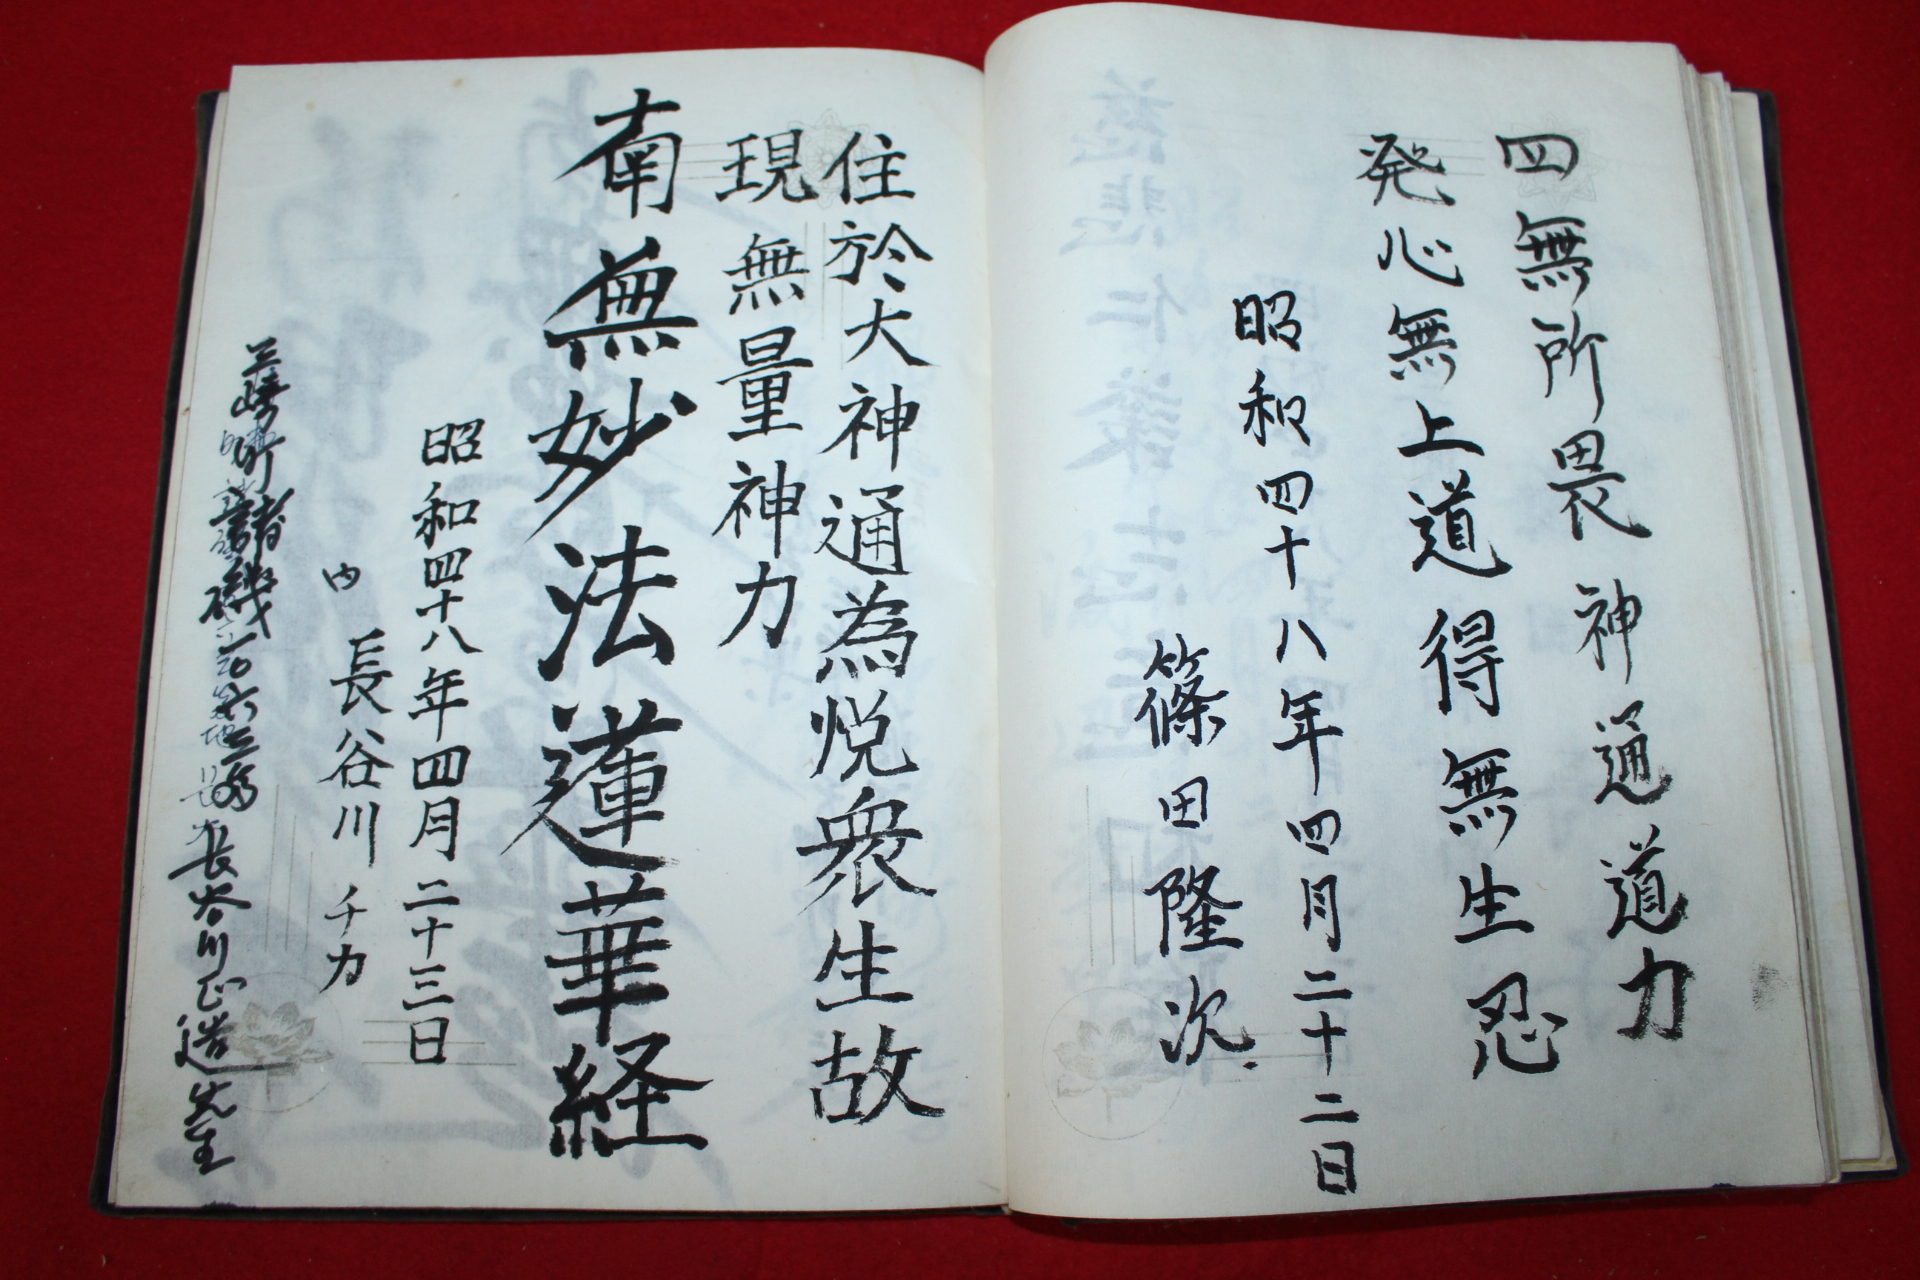 四無所畏神通道力
発心無上道得無生忍
昭和四十八年四月二十二日
篠田隆次
住於大神通為悦衆生故
現無量神力
南無妙法蓮華経
昭和四十八年四月二十三日
内 長谷川チカ
三崎町諸磯二〇六 長谷川正造先生